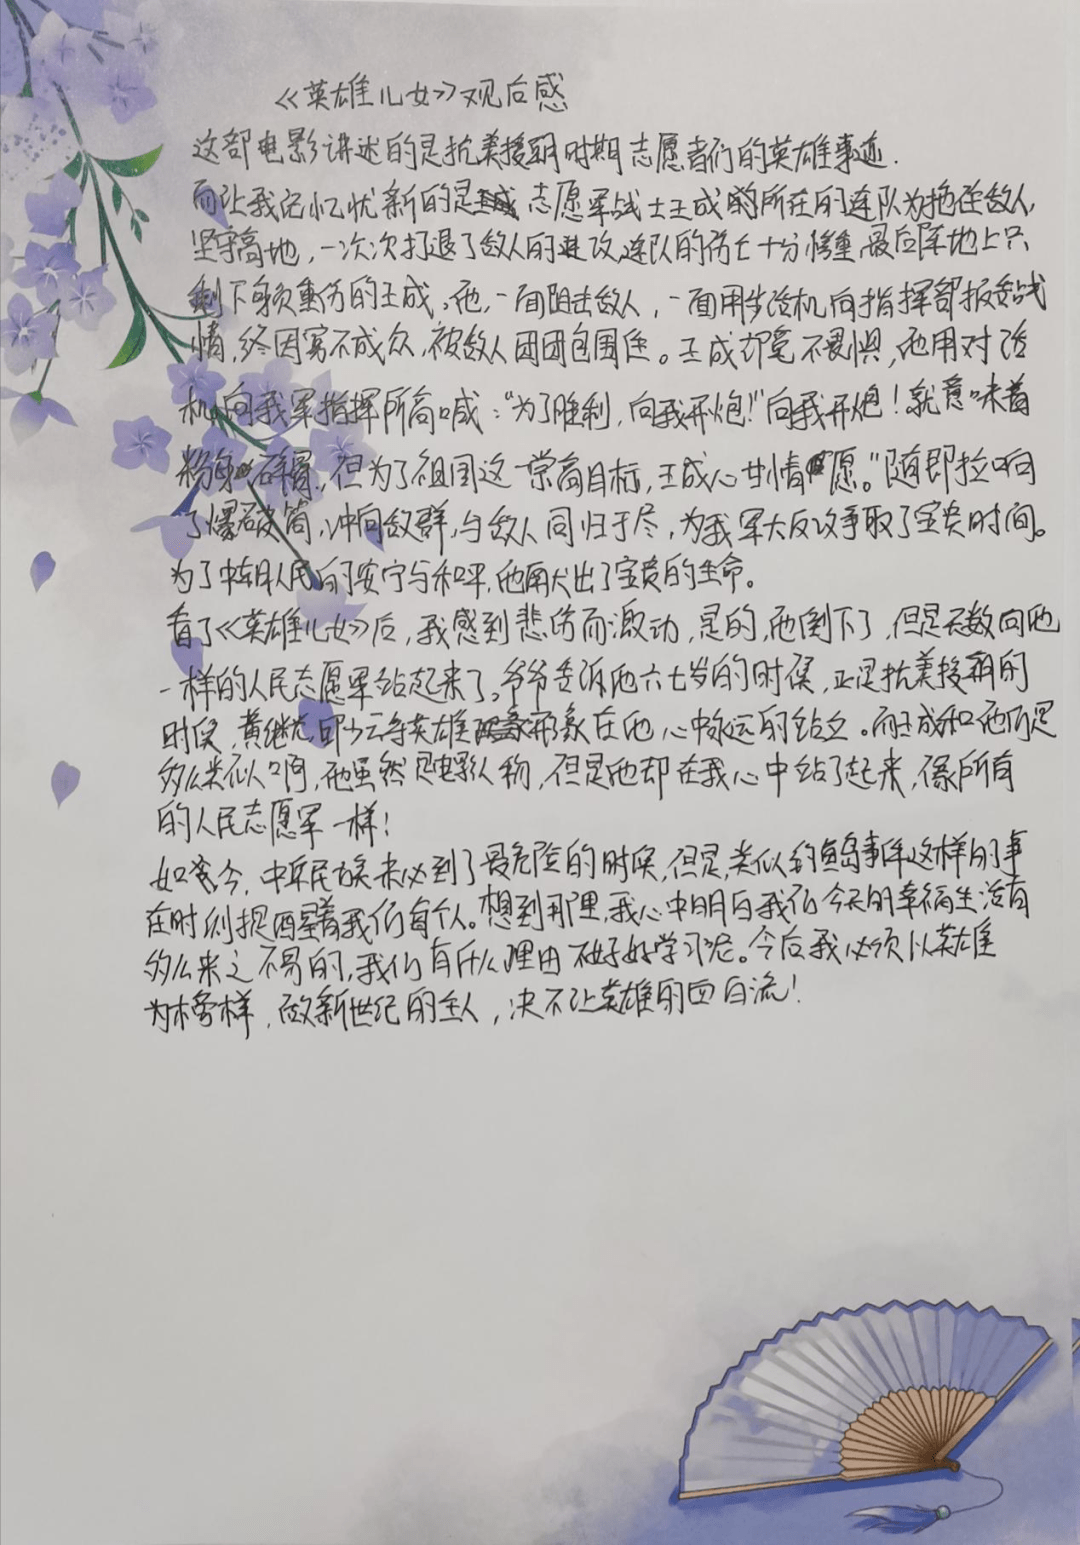 《英雄儿女》观后感
这部电影讲述的是抗美援朝时期志愿者们的英雄事迹.
而让我记忆忧新的是志愿军战士王成的所在的连队为拖住敌人,
坚守高地,一次次打退了敌人的进攻,连队的伤亡十分惨重,最后阵地上只
剩下身负重伤的王成。他,一面阻击敌人,一面用步话机向指挥部报告战
情,终因寡不成众,被敌人团团包围住。王成却毫不畏惧,他用对话
机向我军指挥所高喊:“为了胜利,向我开炮!”向我开炮!就意味着
粉身碎骨,但为了祖国这一崇高目标,王成心甘情愿。”随即拉响
了爆破筒,冲向敌群,与敌人同归于尽,为我军大反攻争取了宝贵时间。
为了中朝人民的安宁与和平,他献出了宝贵的生命。
看了《英雄儿女》后,我感到悲伤而激动,是的,他倒下了,但是无数向他
一样的人民志愿军站起来了。爷爷告诉他六七岁的时候,正是抗美援朝的
时候,黄继光邱少云等英雄形象在他心中永远的站立。而王成和他们是
多么类似啊,他虽然是电影人物,但是他却在我心中站了起来,像所有
的人民志愿军一样!
如今,中华民族未必到了最危险的时候,但是,类似钓鱼岛事件这样的事
在时刻提醒着我们每个人。想到那里,我心中明白我们今天的幸福生活有
多么来之不易的,我们有什么理由不好好学习呢。今后我必须以英雄
为榜样,做新世纪的主人,决不让英雄的血白流!